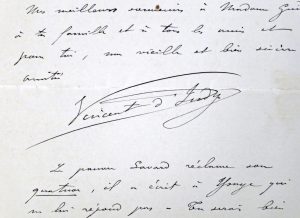 Mes meilleurs souvenirs à Madame
à ta famille et à tous les amis et
pour toi, ma vieille et bien sincère
amitié
Vincent d'Indy
Le pauvre Savard réclame son
quatuor, il a écrit à Ysaye qui
ne lui répond pas - Tu serais bien